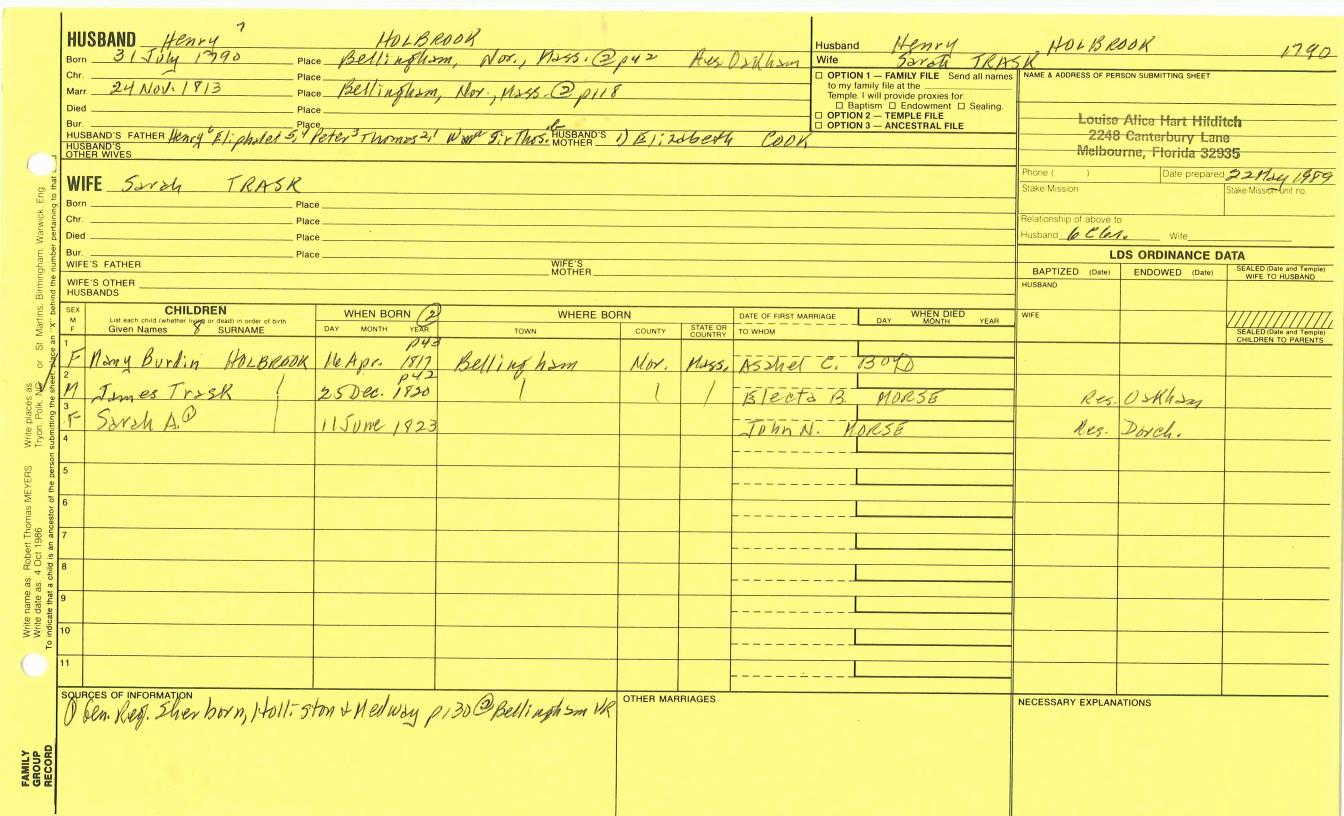 HUSBAND Henry 7 HOLBROOK
Born 31 July 1790 Place Bellingham, Nor., Mass. ② p42 Res Oakham
Chr. Place
Marr. 24 Nov. 1813 Place Bellingham, Nor., Mass. ② p118
Died Place
Bur. Place
HUSBAND'S FATHER Henry 6 Eliphalet 5,4 Peter 3 Thomas 2,1 Sir Thos. HUSBAND'S MOTHER 1) Elizabeth COOK
HUSBAND'S OTHER WIVES
WIFE Sarah TRASK
Born Place
Chr. Place
Died Place
Bur. Place
WIFE'S FATHER WIFE'S MOTHER
WIFE'S OTHER HUSBANDS
Husband Henry HOLBROOK 1790
Wife Sarah TRASK
☐ OPTION 1 — FAMILY FILE Send all names
to my family file at the
Temple. I will provide proxies for
☐ Baptism ☐ Endowment ☐ Sealing.
☐ OPTION 2 — TEMPLE FILE
☐ OPTION 3 — ANCESTRAL FILE
NAME & ADDRESS OF PERSON SUBMITTING SHEET
Louise Alice Hart Hilditch
2248 Canterbury Lane
Melbourne, Florida 32935
Phone ( ) Date prepared 22 May 1989
Stake Mission Stake Mission unit no.
Relationship of above to
Husband 6 C Wife
LDS ORDINANCE DATA
BAPTIZED (Date) ENDOWED (Date) SEALED (Date and Temple) WIFE TO HUSBAND
HUSBAND
WIFE
SEALED (Date and Temple) CHILDREN TO PARENTS
SEX M F CHILDREN List each child (whether living or dead) in order of birth Given Names 8 SURNAME
WHEN BORN ② DAY MONTH YEAR
WHERE BORN TOWN COUNTY STATE OR COUNTRY
DATE OF FIRST MARRIAGE TO WHOM
WHEN DIED DAY MONTH YEAR
1 F Nancy Burdin HOLBROOK 16 Apr. 1817 p43 Bellingham Nor. Mass. Asahel C. BOYD
2 M James Trask 25 Dec. 1820 p42 Electa B. MORSE Res. Oakham
3 F Sarah A. ① 11 June 1823 John N. MORSE Res. Dorch.
4
5
6
7
8
9
10
11
SOURCES OF INFORMATION
① Gen. Reg. Sherborn, Holliston & Medway p130 ② Bellingham VR
OTHER MARRIAGES
NECESSARY EXPLANATIONS
Write name as: Robert Thomas MEYERS Write places as: Tryon, Polk, NC or St. Martins, Birmingham, Warwick, Eng.
Write date as: 4 Oct 1986
To indicate that a child is an ancestor of the person submitting the sheet, place an "X" behind the number pertaining to that
FAMILY
GROUP
RECORD